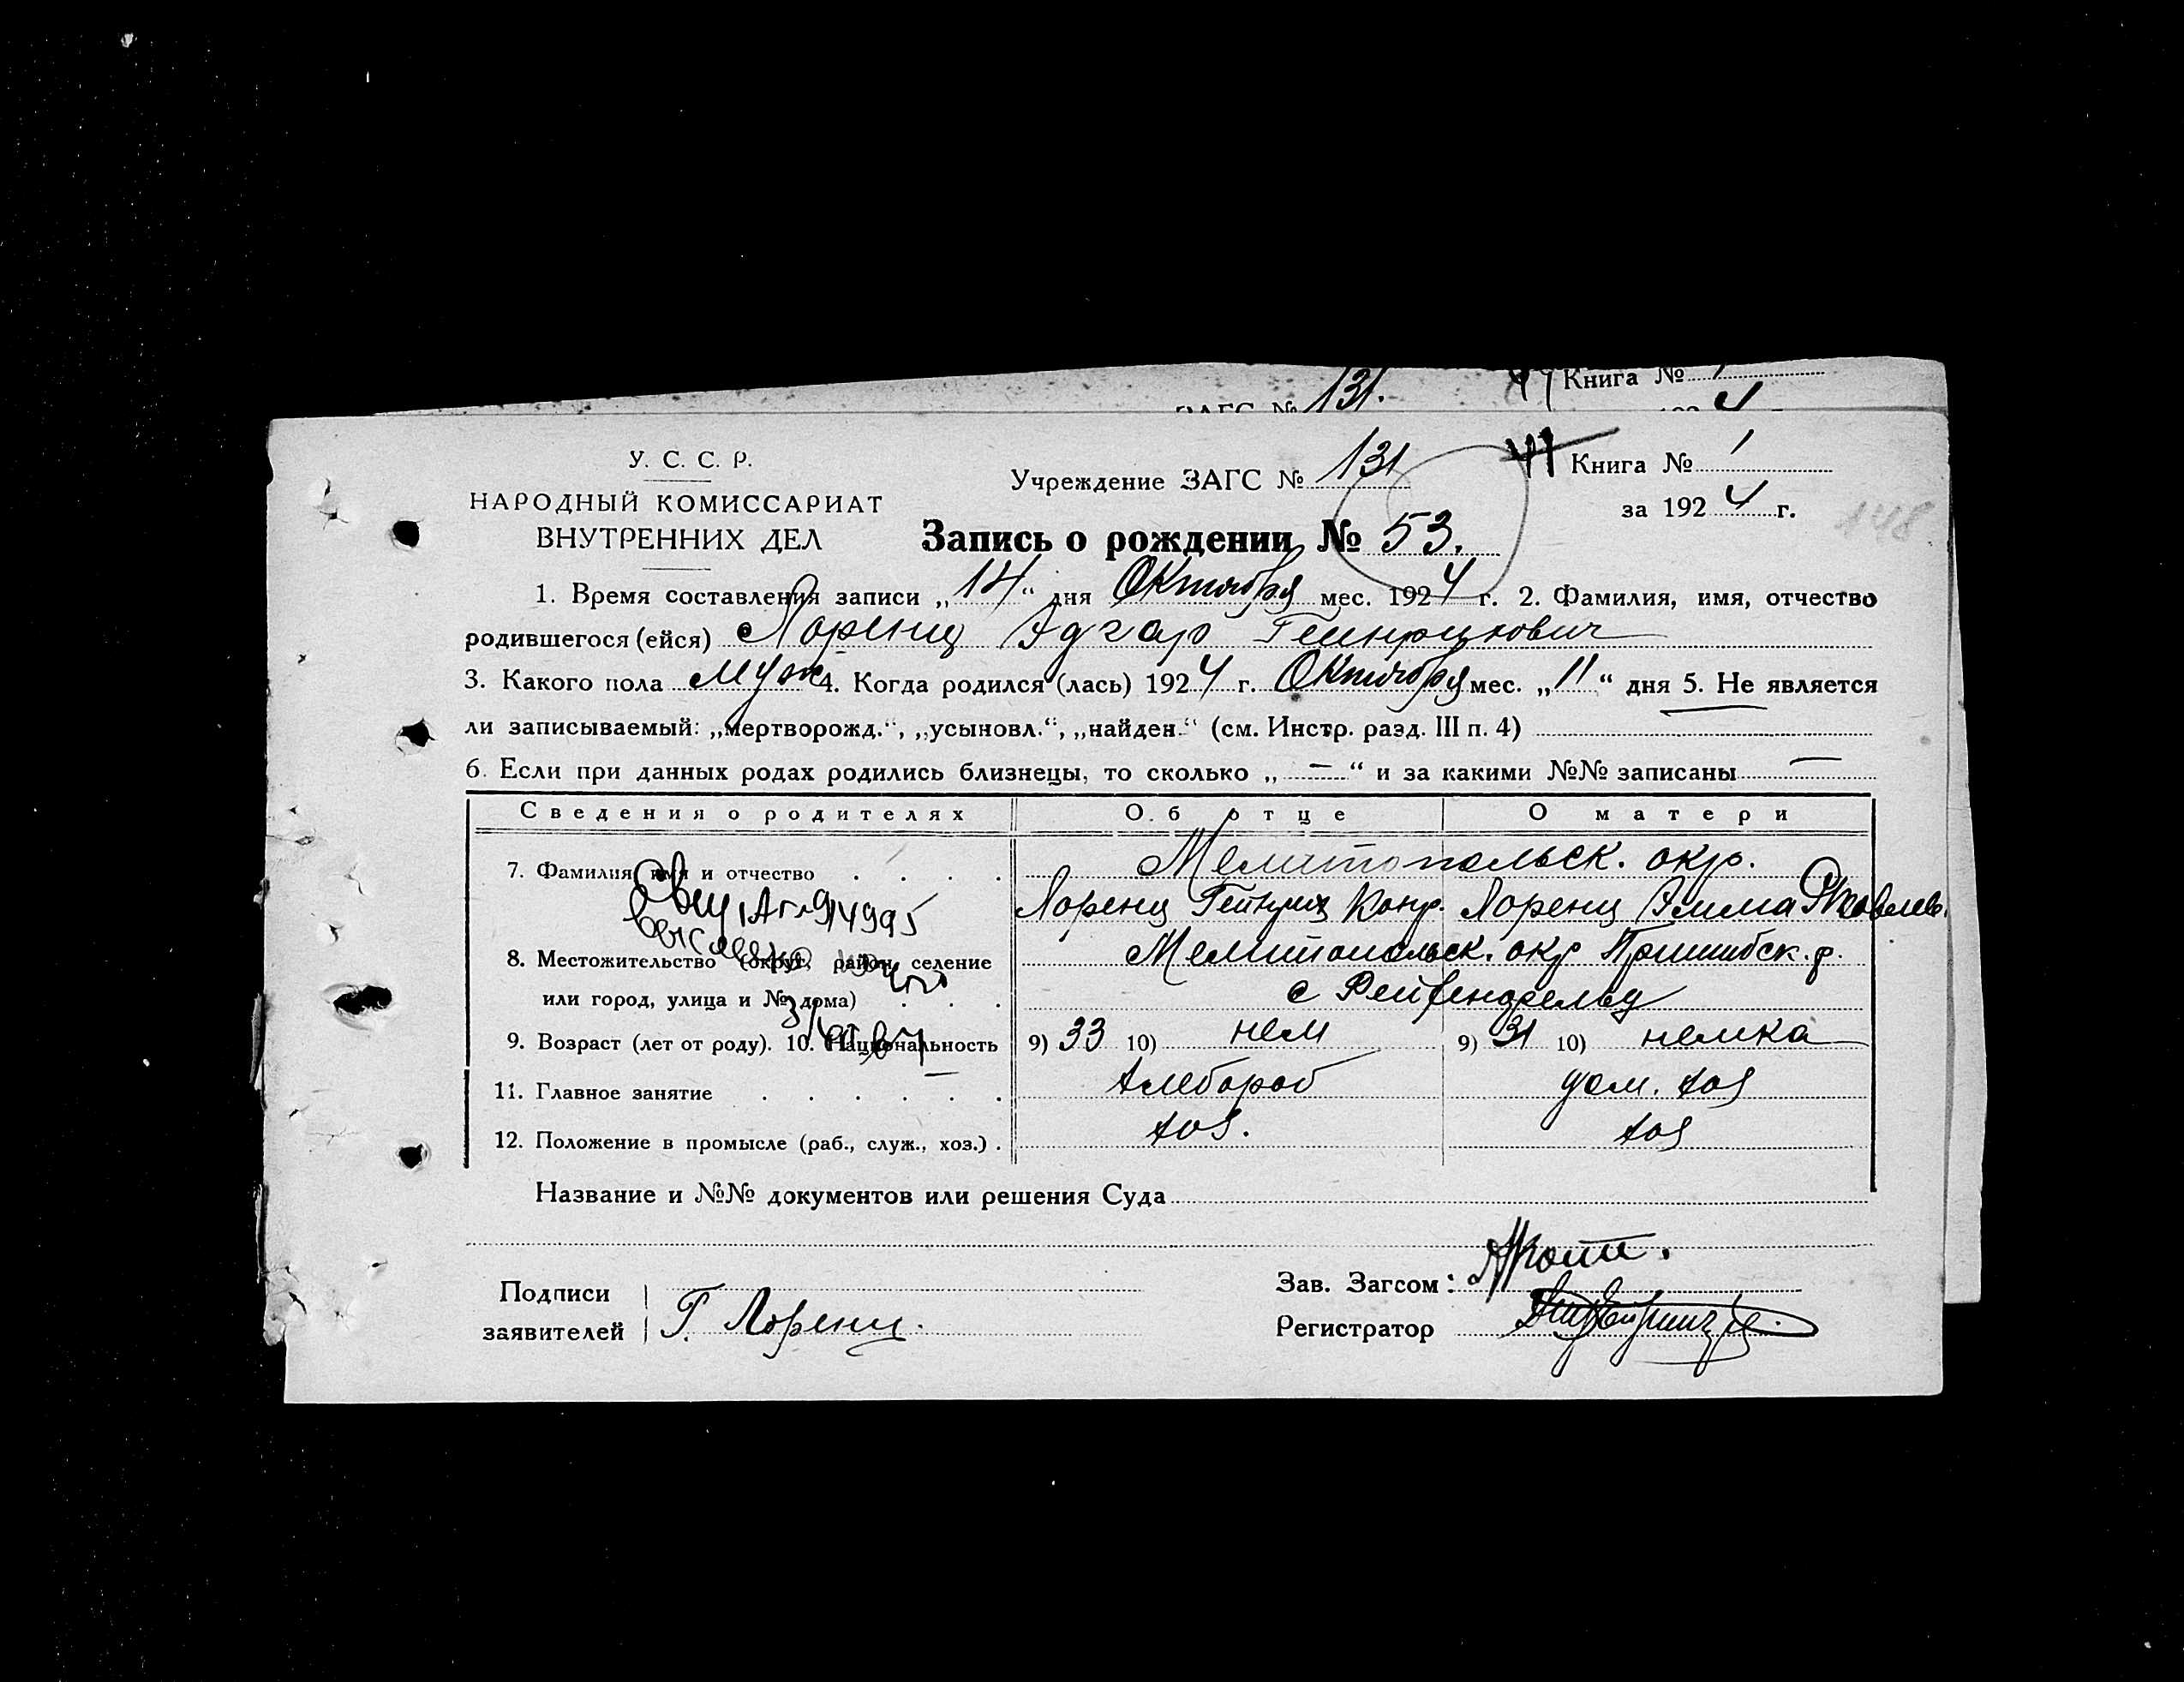 131. 44 Книга №
У. С. С. Р.
НАРОДНЫЙ КОМИССАРИАТ
ВНУТРЕННИХ ДЕЛ
Учреждение ЗАГС № 131
Книга № 1
за 1924 г.
148
Запись о рождении № 53.
1. Время составления записи „14“ дня Октября мес. 1924 г. 2. Фамилия, имя, отчество
родившегося (ейся) Лоренц Эдгар Гейнрихович
3. Какого пола муж 4. Когда родился (лась) 1924 г. Октября мес. „11“ дня 5. Не является
ли записываемый: „мертворожд.“, „усыновл.“, „найден.“ (см. Инстр. разд. III п. 4)
6. Если при данных родах родились близнецы, то сколько „—“ и за какими №№ записаны —
Сведения о родителях Об отце О матери
Мелитопольск. окр.
7. Фамилия, имя и отчество . . . . Лоренц Гейнрих Конр. Лоренц Эмма Яковлев.
8. Местожительство (округ, район, селение Мелитопольск. окр Пришибск. р.
или город, улица и № дома) . . . с Рейхенфельд
9. Возраст (лет от роду). 10. Национальность 9) 33 10) нем 9) 31 10) немка
11. Главное занятие . . . . . . хлебороб дом. хоз
12. Положение в промысле (раб., служ., хоз.) . хоз. хоз
Название и №№ документов или решения Суда
Подписи
заявителей Г. Лоренц.
Зав. Загсом:
Регистратор